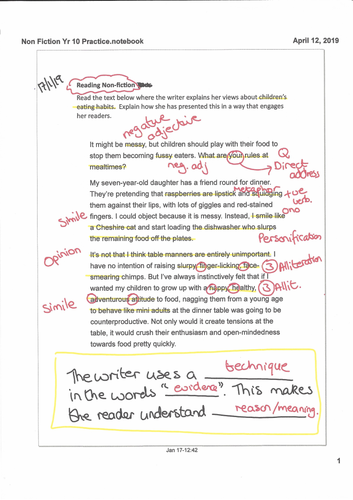 Non Fiction Yr 10 Practice.notebook
April 12, 2019
17/1/19
Reading Non-fiction
Read the text below where the writer explains her views about children's
eating habits. Explain how she has presented this in a way that engages
her readers.
negative
adjective
It might be messy, but children should play with their food to
stop them becoming fussy eaters. What are your rules at
Q
mealtimes?
neg. adj
Direct
address
My seven-year-old daughter has a friend round for dinner.
metaphor
They're pretending that raspberries are lipstick and squidging
+ve
verb.
them against their lips, with lots of giggles and red-stained
ono
Simile
fingers. I could object because it is messy. Instead, I smile like
a Cheshire cat and start loading the dishwasher who slurps
the remaining food off the plates.
Personification
Opinion
It's not that I think table manners are entirely unimportant. I
have no intention of raising slurpy, finger-licking, face-
3 Alliteration
smearing chimps. But I've always instinctively felt that if I
wanted my children to grow up with a happy, healthy,
3 Allit.
Simile
adventurous attitude to food, nagging them from a young age
to behave like mini adults at the dinner table was going to be
counterproductive. Not only would it create tensions at the
table, it would crush their enthusiasm and open-mindedness
towards food pretty quickly.
The writer uses a technique
in the words "evidence". This makes
the reader understand reason/meaning.
Jan 17-12:42
1